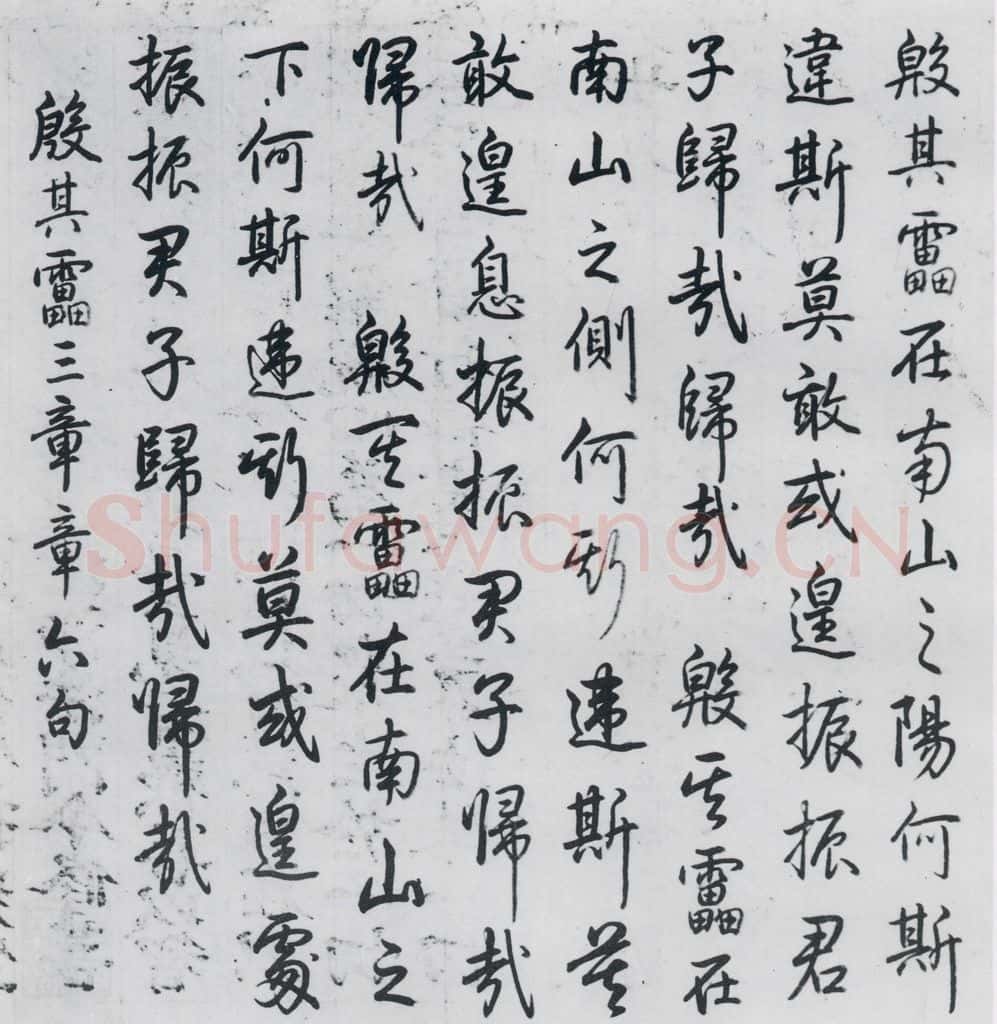 殷其靁在南山之陽何斯
違斯莫敢或遑振振君
子歸哉歸哉 殷其靁在
南山之側何斯違斯莫
敢遑息振振君子歸哉
歸哉 殷其靁在南山之
下何斯違斯莫或遑處
振振君子歸哉歸哉
殷其靁三章章六句
Shufawang.CN